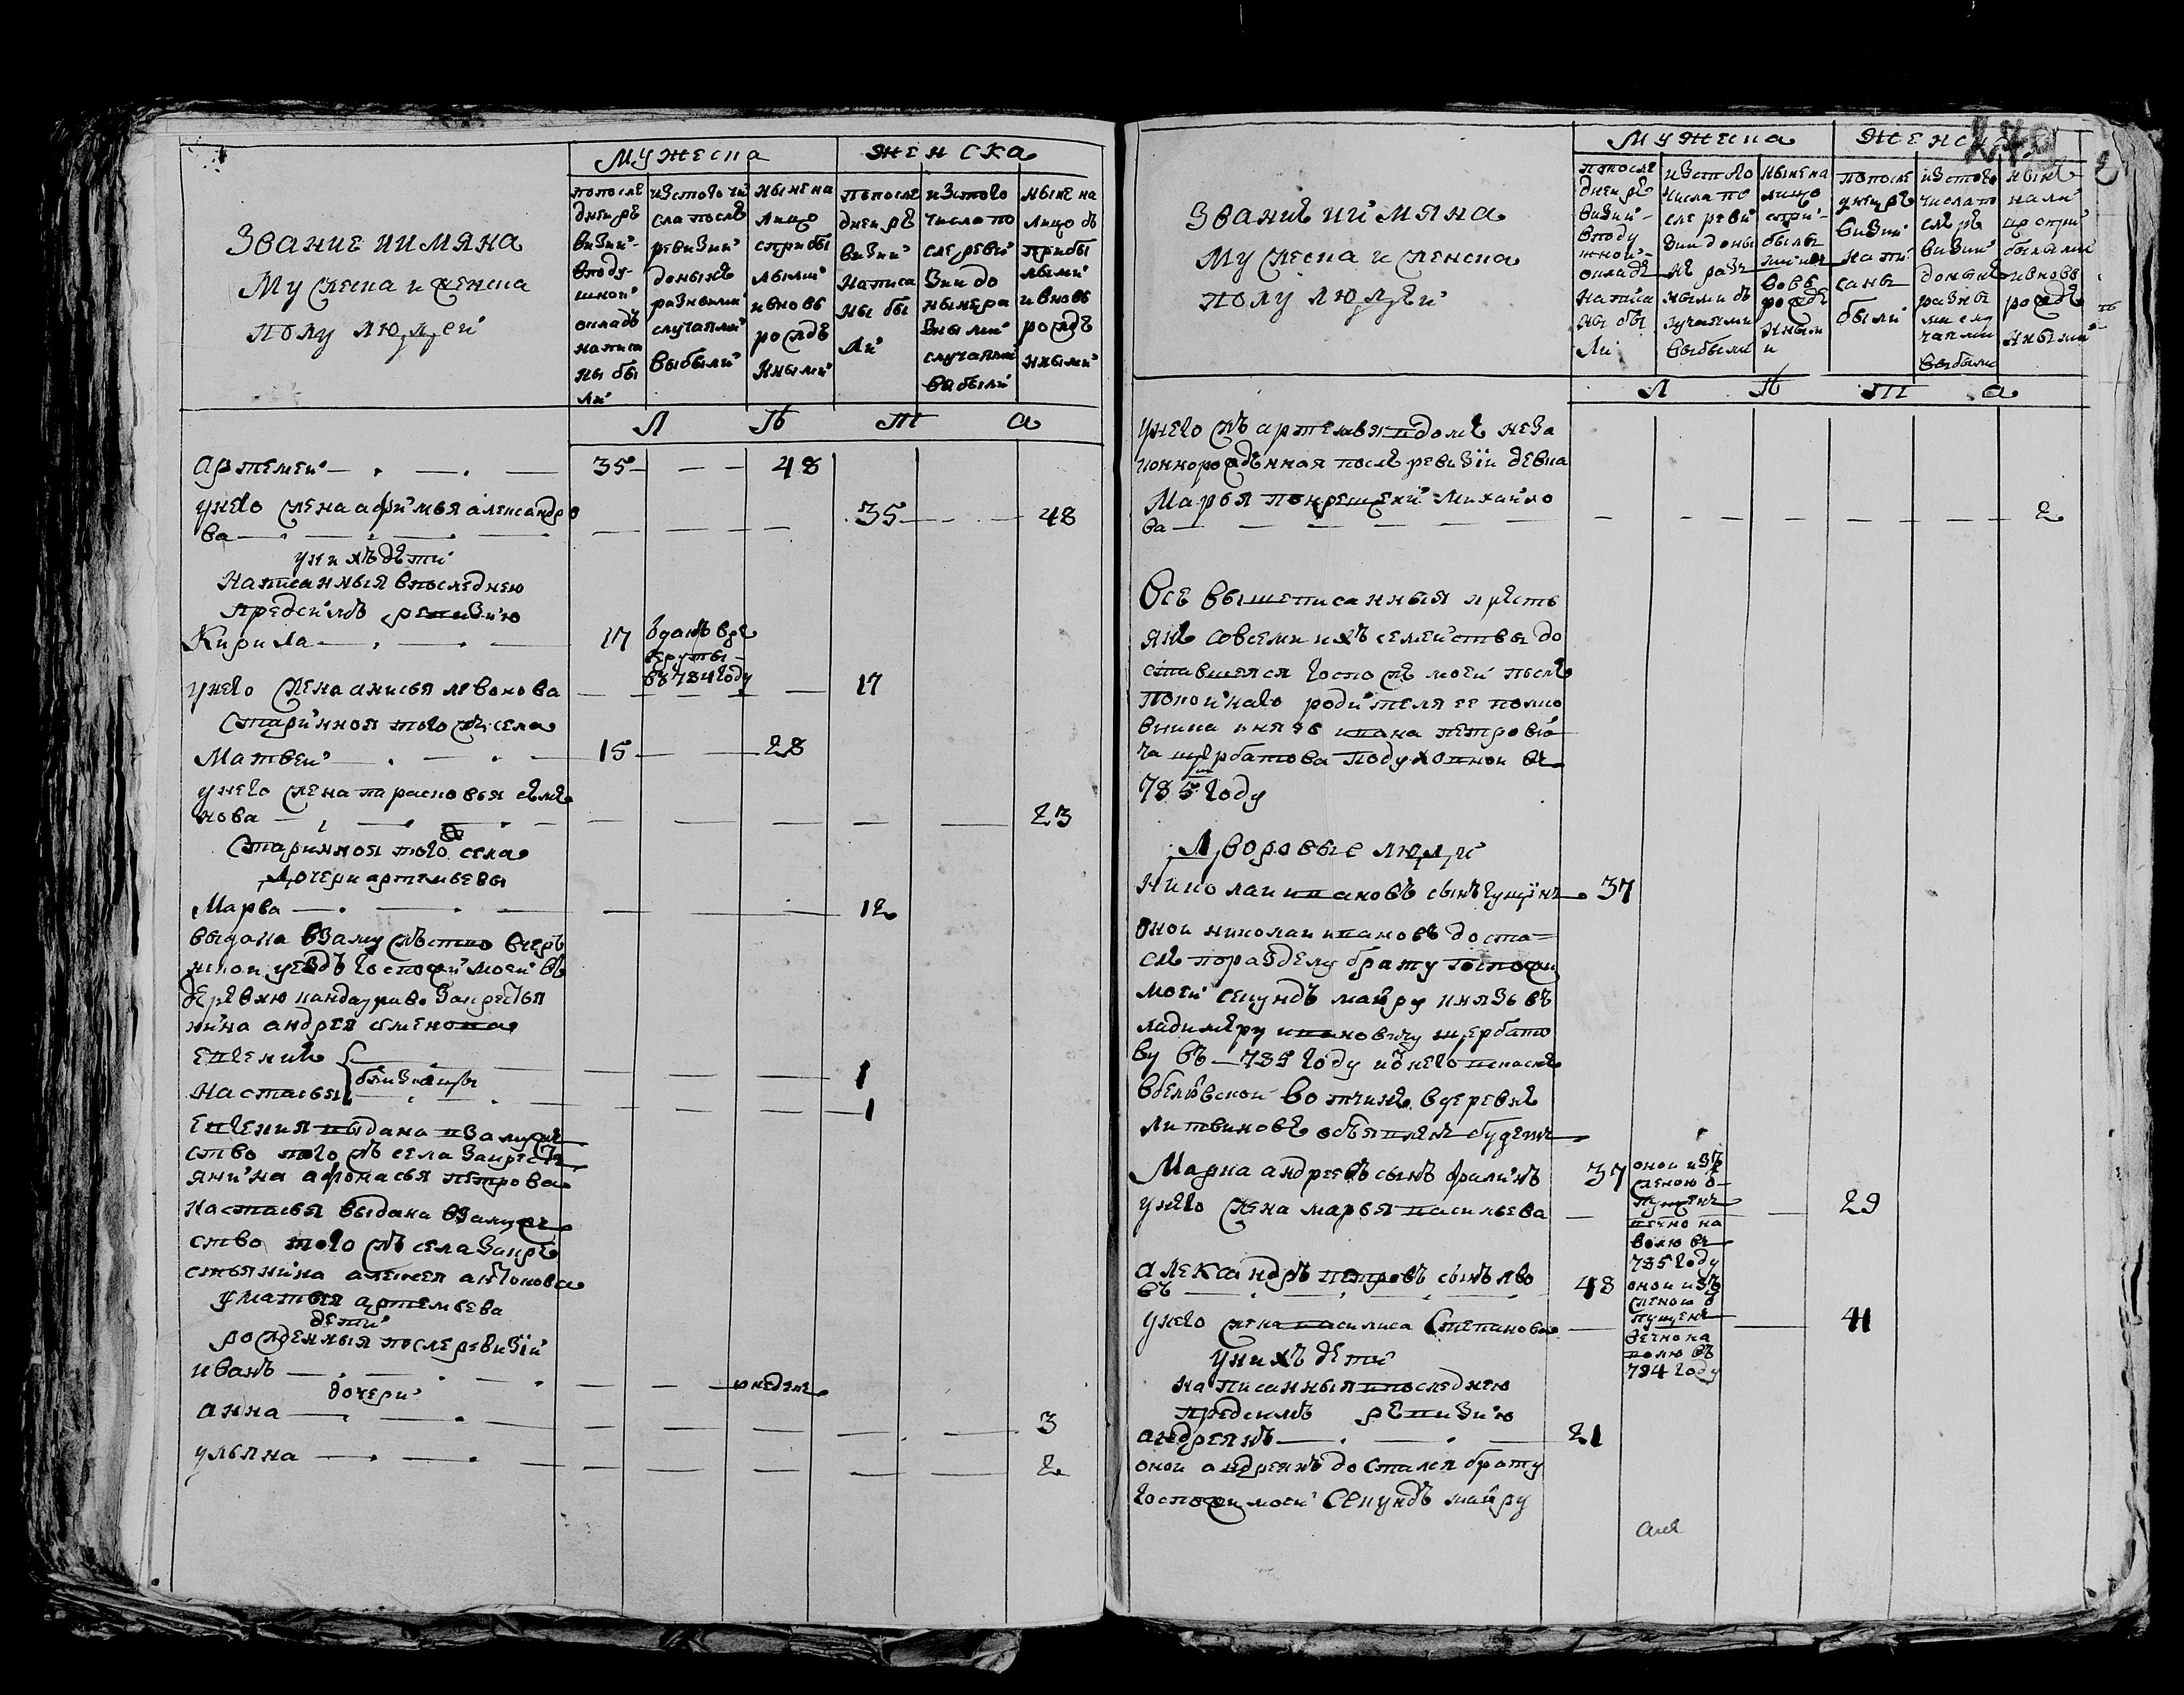 Звание иимяна
Мужеска иженска
полу людеи
Мужеска
женска
попосле
днеи ре
визии
вподу
шнои
окладъ
написа
ны бы
ли
изтого чи
сла послѣ
ревизии
донынѣ
разными
случаями
выбыли
ныне на
лицо
сприбы
лыми
ивновь
рожде
нными
попосле
днеи ре
визии
написа
ны бы
ли
изтого
числа по
сле реви
зии до
ныне ра
зными
случаями
выбыли
ныне на
лицо съ
прибы
лыми
ивновь
рожде
нными
Л Ѣ Т А
артемеи 35 48
унего жена афимья александро
ва 35 48
уни хъ дѣти
написанныя впоследнею
предсимъ ревизию
Кирила 17 зданъ вре
круты
въ 784 году
унего жена анисья левонова 17
Старинная тогожъ села
Матвеи 15 28
унего жена парасковья семе
нова 23
Старинная того села
Дочери артемьевы
Марва 12
выдана взамужъство вчерн
ской уездъ госпожи моей въ
деревню кандаурово закрестья
нина андрея семенова
евгения близнецы 1
Настасья 1
евгения выдана взамуже
ство тогожъ села закресть
янина афонасья петрова
настасья выдана взамуже
ство тогожъ села закре
стьянина алексея антонова
уматвея артемьева
дети
рожденныя послеревизии
иванъ юнеделъ
дочери
анна 3
ульяна 2
270
Звание ийимяна
Мужеска иженска
полу людей
Мужеска
Женска
попосле
днеи ре
визии
вподу
шнои
окладе
написа
ны бы
ли
изтого
числа по
сле реви
зии доны
не разн
ными
случаями
выбыли
ныне на
лицо
спри
былы
ми
вовь
рожде
нным
и
попосле
днеи ре
визии
напи
саны
были
изтого
числа по
сле ре
визии
донынѣ
разны
ми слу
чаями
выбыли
ныне
нали
цо спри
былыми
ивновь
рожде
нными
Л Ѣ Т А
унегожъ артемья вдоме неза
коннорожденная после ревизии девка
Марья покрещении Михайло
ва 2
Все вышеписанныя кресть
яне совсеми ихъ семействы до
ставшеяся госпоже моей после
покойнаго родителя ее полко
вника князя ивана петрови
ча щербатова подуховной въ
785 году
Дворовые люди
Николаи ивановъ сынъ гущинъ 37
оной николаи ивановъ доста
ся поразделу брату госпожи
моей секундъ маиору князь въ
ладимеру ивановичу щербато
ву въ 785 году иунего писанъ
вбелевской вотчине вдеревне
литвинове объявленъ будетъ
Марка андреевъ сынъ фралинъ 37 оной изъ
женою о
тпущенъ
вечно на
волю въ
785 году
унего жена марья васильева 29
александръ петровъ сынъ лво
въ 48 оной изъ
женою о
тпущенъ
вечно на
волю въ
784 году
унего жена василиса Степанова 41
уни хъ дети
написанныя впоследнею
предсимъ ревизию
андреянъ 21
оной андреянъ достался брату
госпожи моей Секундъ маиору